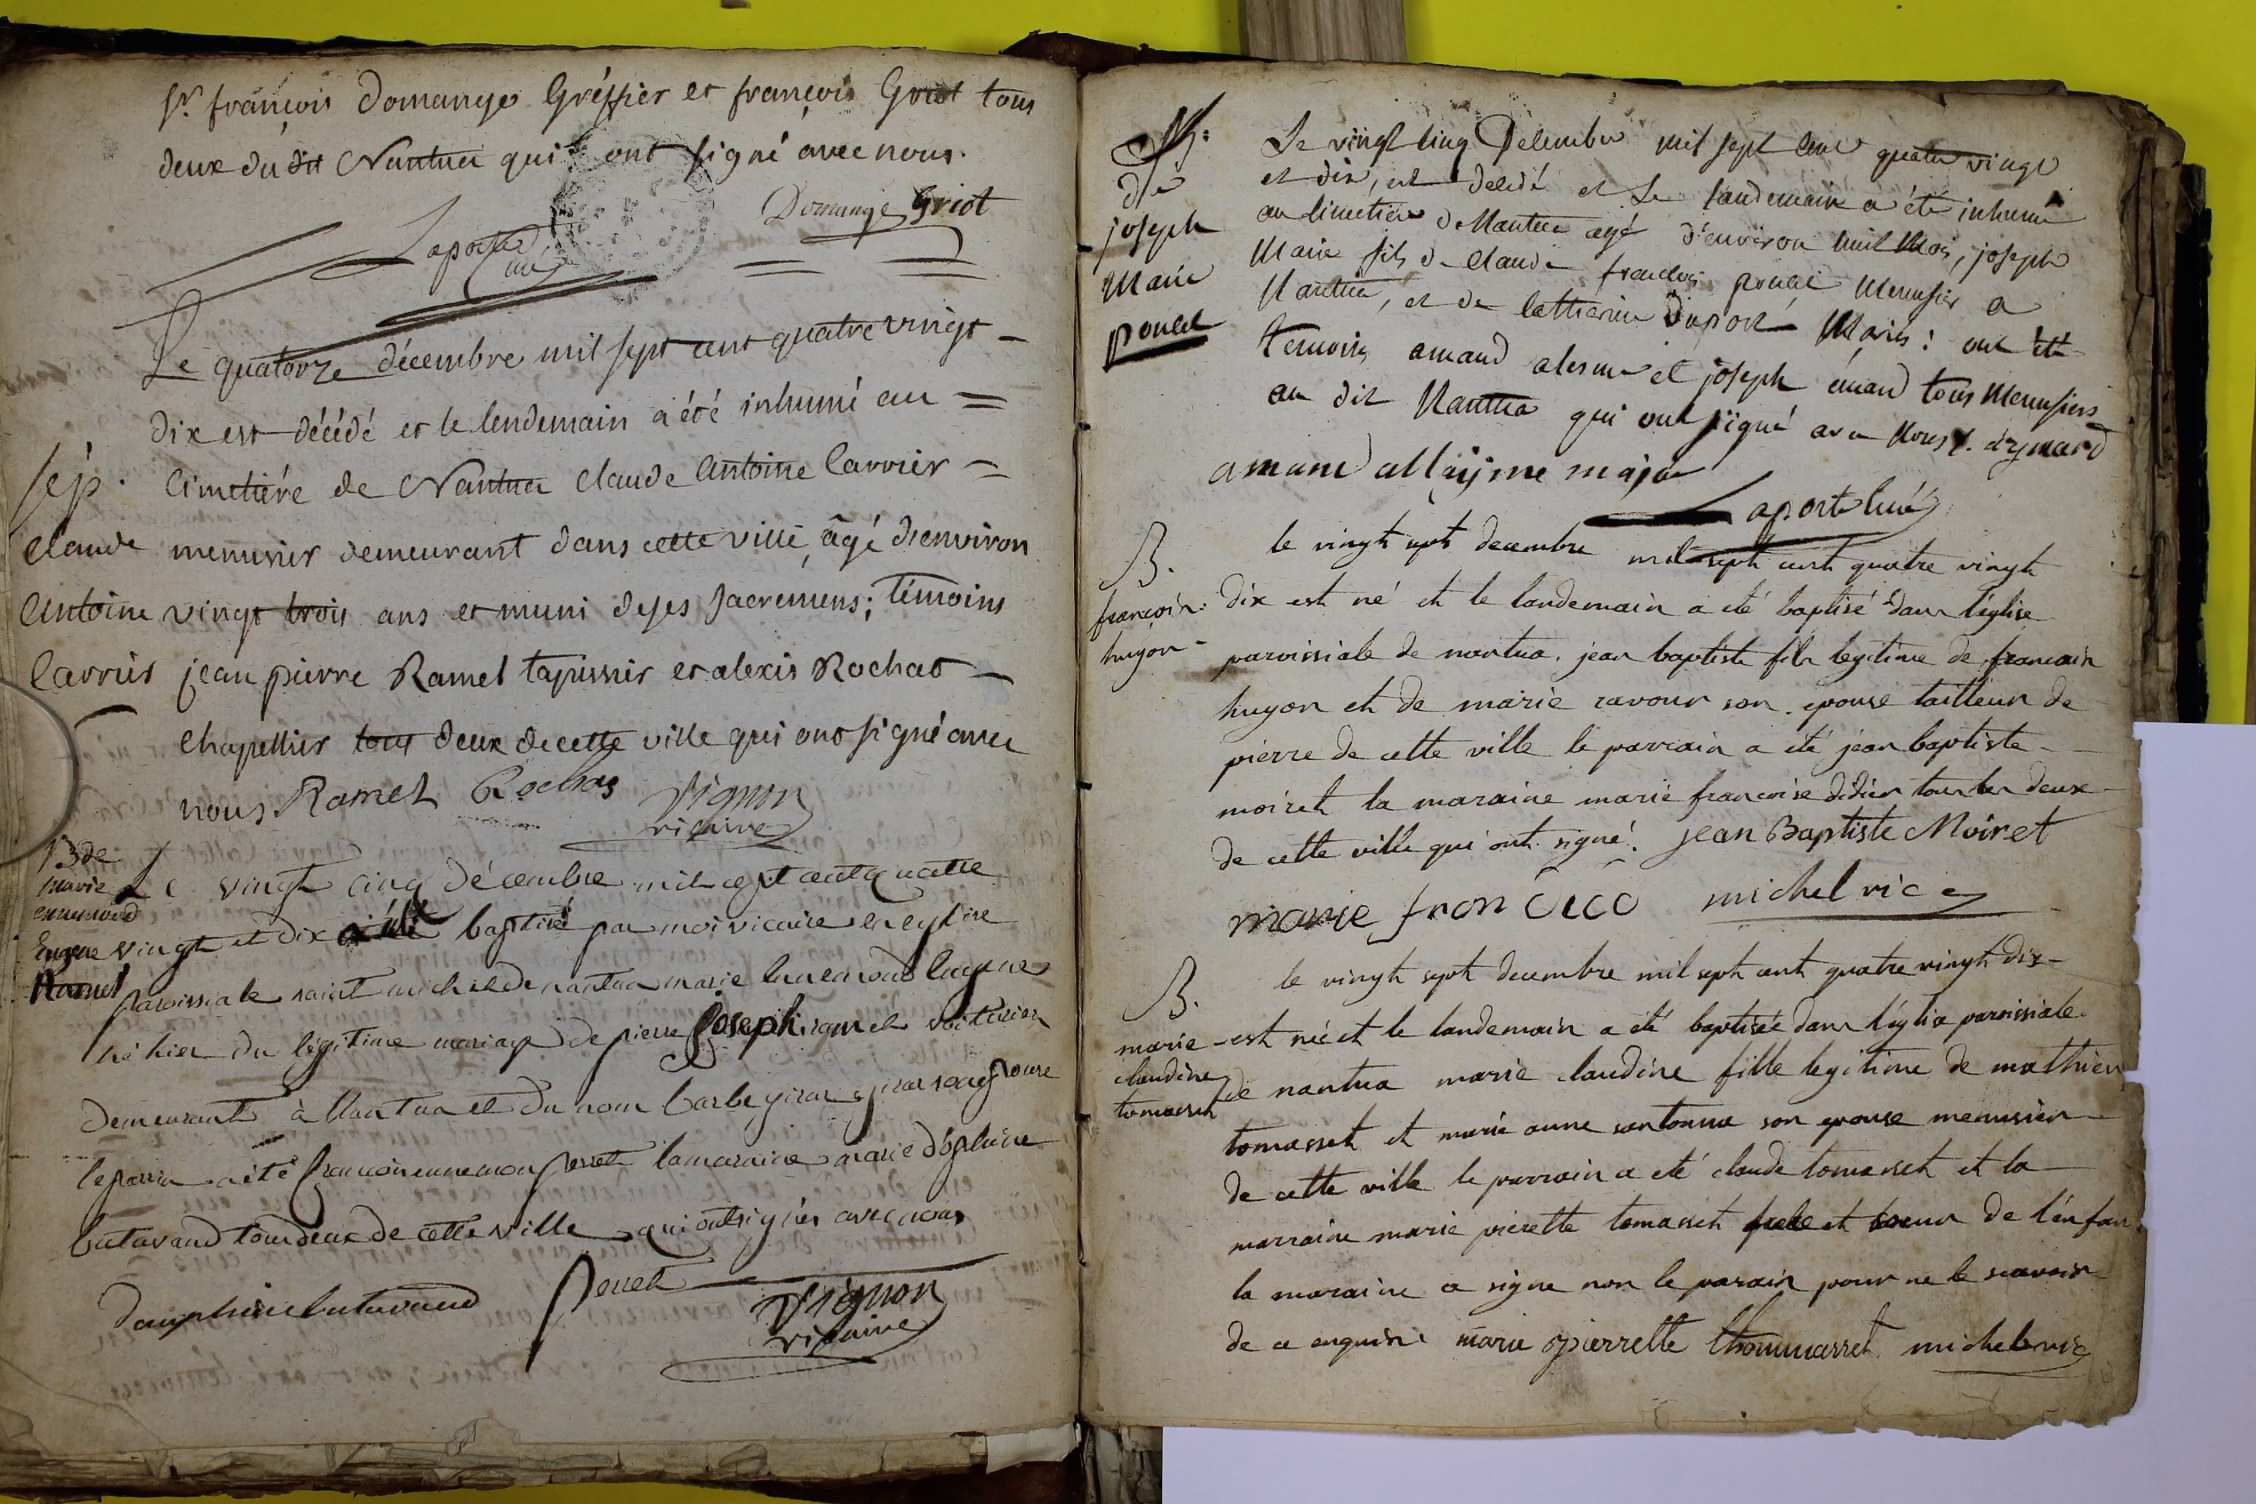 Sr. françois Domange Gréffier et françois Griot tous
deux du dit Nantua qui ont signé avec nous.
Domange Griot
Laporte curé
Le quatorze décembre mil sept cent quatre vingt
dix est décédé et le lendemain a été inhumé au
Sép. Cimetiére de Nantua Claude Antoine Carrier
Claude menusier demeurant dans cette ville, âgé d'environ
Antoine vingt trois ans et muni de ses sacremens; témoins
Carrier jean pierre Ramel tapissier et alexis Rochat
Chapellier tous deux de cette ville qui ont signé avec
nous Ramel Rochas Vignon
vicaire
B de
marie Le vingt cinq décembre mil sept cent quatre
ennemond
Eugene vingt et dix a été baptisé par moi vicaire en eglise
Ramel paroissiale saint michel de nantua marie ennemond Eugene
né hier du légitime mariage de pierre Joseph ramel voiturier
demeurant à Nantua et du nom Barbe girar son epouse
le parrin a été francois ennemon perret la maraine marie dophine
butavand tous deux de cette ville qui ont signés avec nous
dauphine butavand perret Vignon
vicaire
Sép:
de
joseph
Marie
poncet
Le vingt cinq Decembre mil sept cent quatre vingt
et dix, est decedé et Le landemain a été inhumé
au cimetiere de Nantua agé d'environ huit Mois, joseph
Marie fils de Claude francois poncet Menusier a
Nantua, et de Catherine Duport Mariés: ont été
temoins amand alesme et joseph emard tous Menusiers
au dit Nantua qui ont signé avec Nous J. aymard
amand allayme major
Laporte curé
B.
francois
huyon
le vingt sept decembre mil sept cent quatre vingt
dix est né et le landemain a eté baptisé dans l'église
paroissiale de nantua. jean baptiste fils legitime de francois
huyon et de marie ravour son epouse tailleur de
pierre de cette ville le parrain a été jean baptiste
moiret la maraine marie francoise didier tous les deux
de cette ville qui ont signé. jean Baptiste Moiret
marie michel vic
B.
marie
claudine
tomasset
le vingt sept decembre mil sept cent quatre vingt dix
est née et le landemain a eté baptisée dans l'église paroissiale
de nantua marie claudine fille legitime de mathieu
tomasset et marie anne santonna son epouse menusier
de cette ville le parrain a eté claude tomasset et la
marraine marie pierette tomasset frere et soeur de l'enfan
la maraine a signe non le parain pour ne le scavoir
de ce enquis marie pierrette thommasset michel vic